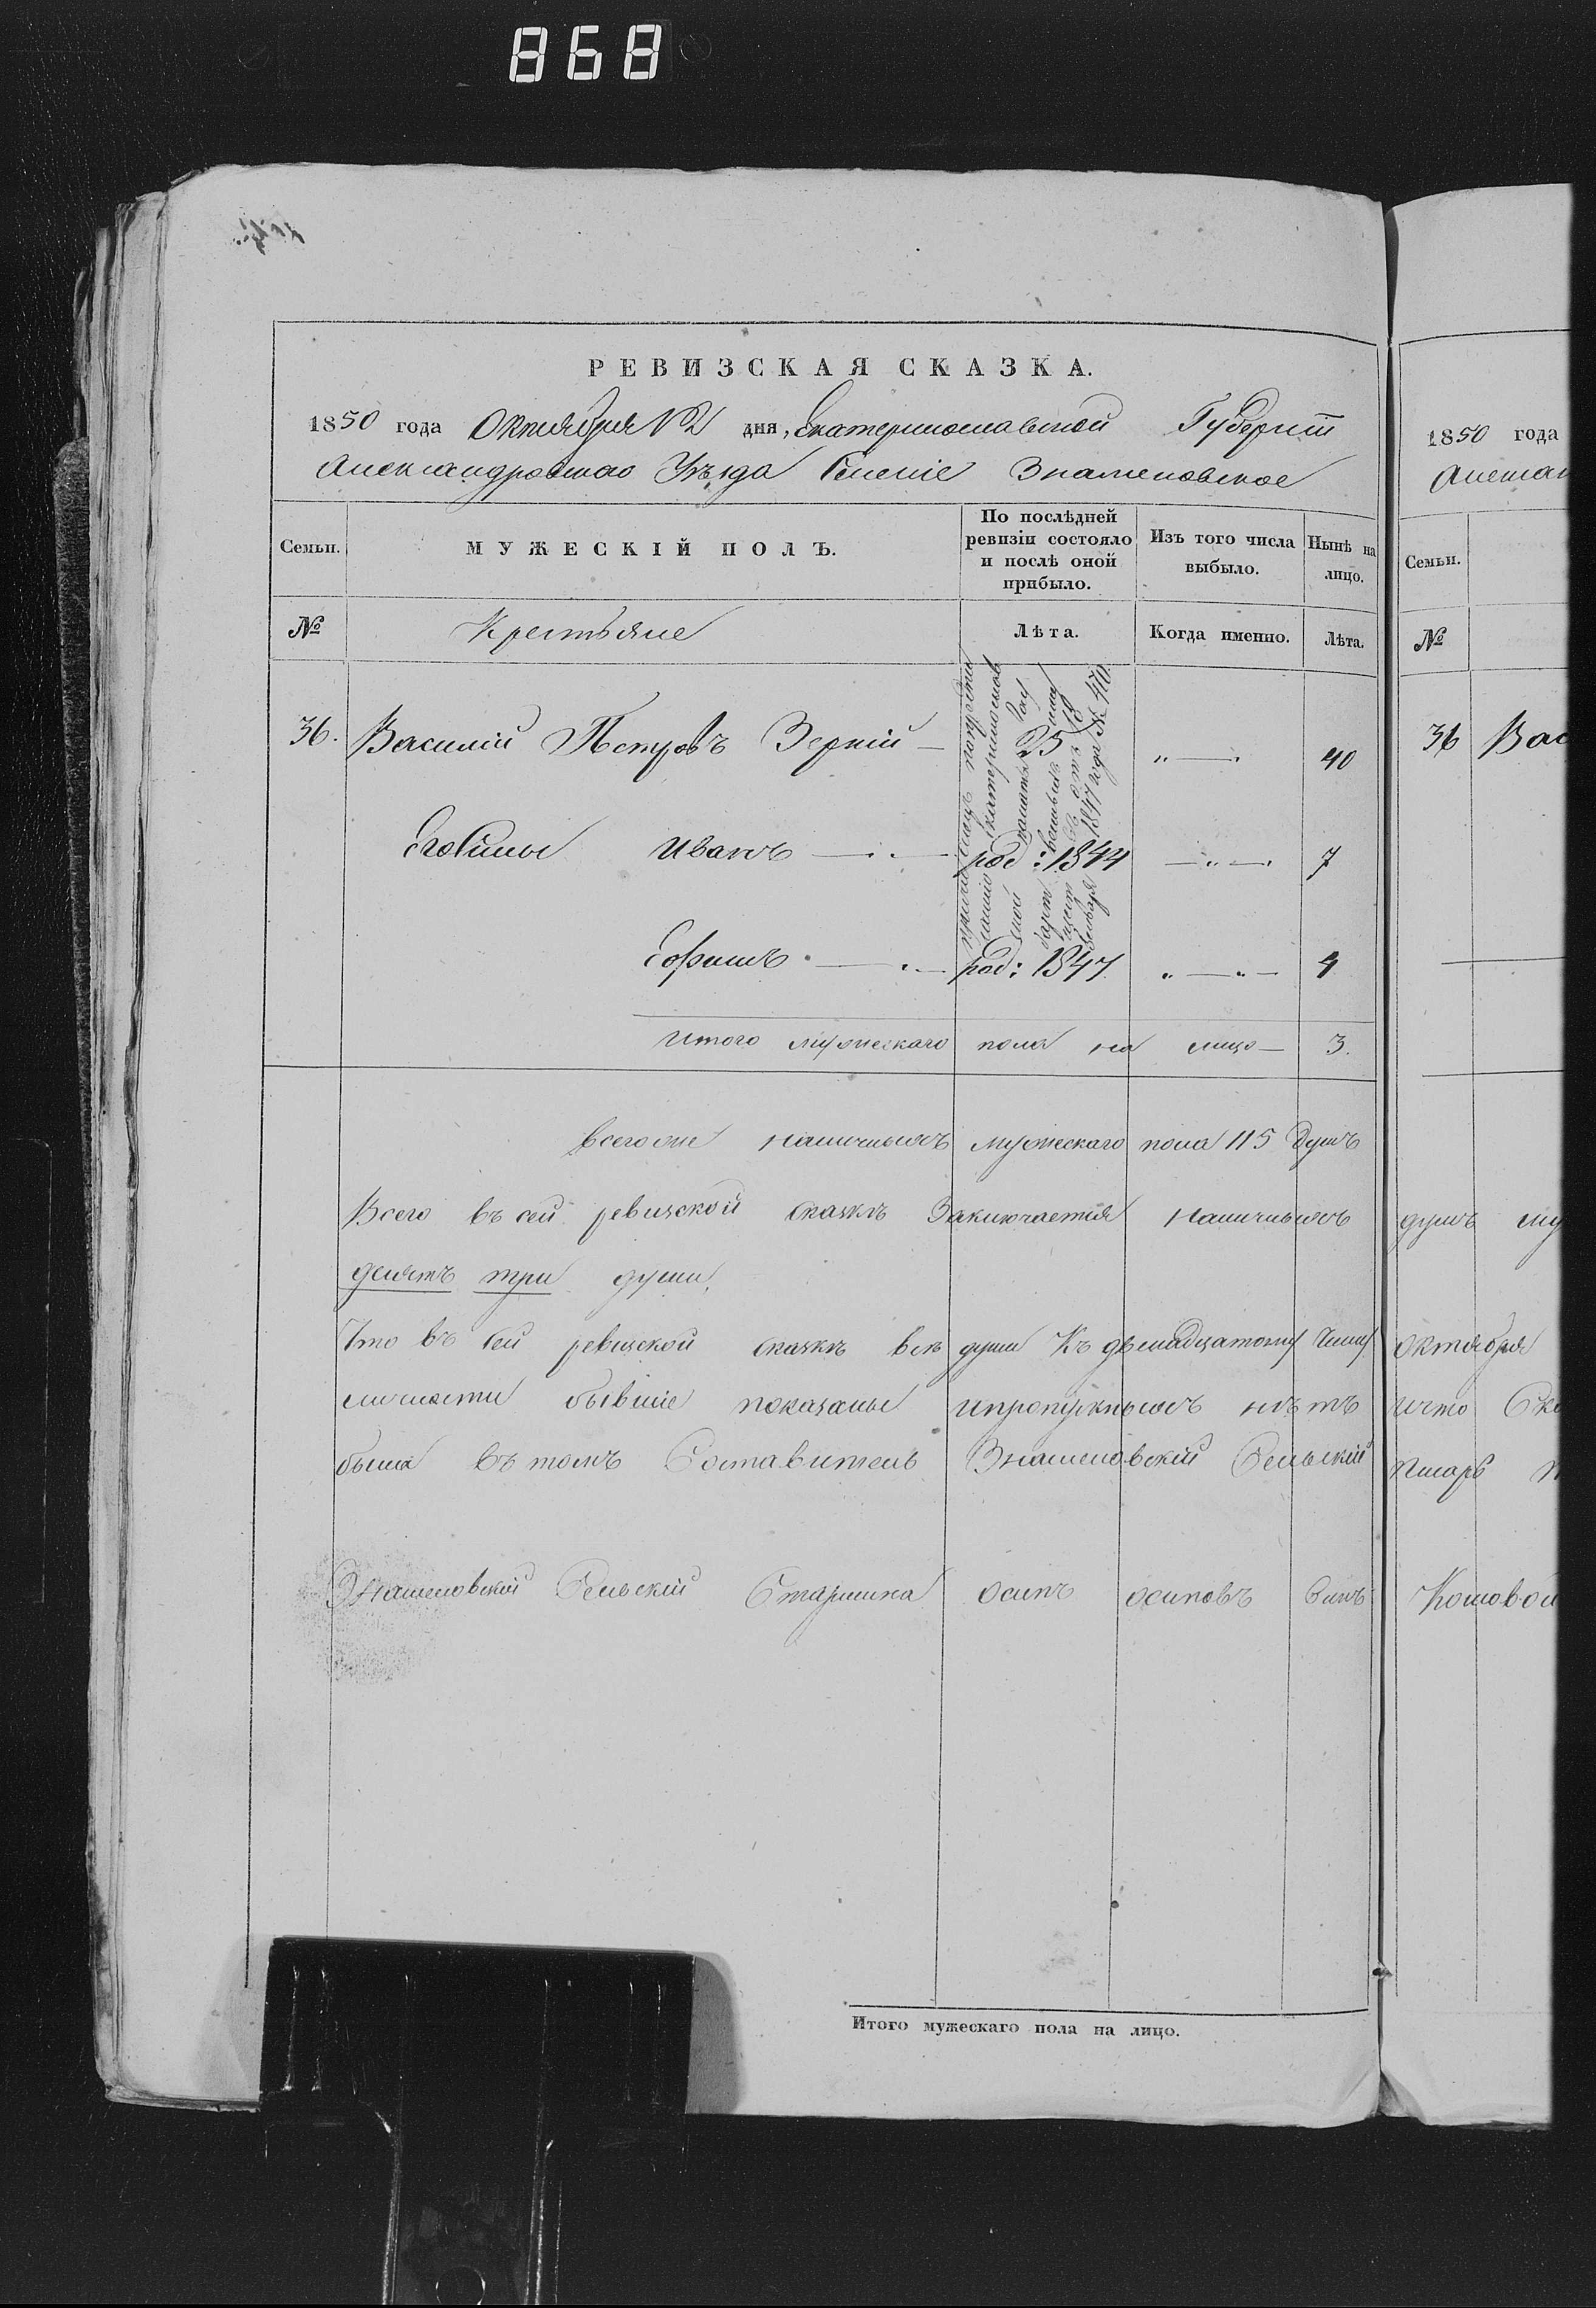 868
РЕВИЗСКАЯ СКАЗКА.
1850 года Октября 12 дня, Екатеринославской Губерніи
Александровскаго Уѣзда Селеніе Знаменовское
Семьи.
МУЖЕСКІЙ ПОЛЪ.
По послѣдней ревизіи состояло и послѣ оной прибыло.
Изъ того числа выбыло.
Нынѣ на лицо.
№
Крестьяне
Лѣта.
Когда именно.
Лѣта.
36. Василій Петровъ Зерній — 25 „ — „ 40
Его Сыны Иванъ — род: 1844 — „ — 7
Ефимъ — род: 1847 „ — „ — 4
Итого мужескаго пола на лицо — 3.
Всего же наличныхъ мужескаго пола 115 Душъ
Всего въ сей ревизской сказкѣ Заключается наличныхъ
десятъ три души,
Что въ сей ревизской сказкѣ всѣ души Къ двенадцатому Числу
бывшіе показаны и пропускныхъ нѣтъ
была въ томъ Составитель Знаменовскій Сельскій
Знаменовской Сельскій Старшина Осипъ Осиповъ Сынъ
Итого мужескаго пола на лицо.
1850 года
Семьи.
№
36 Вас
душъ му
Октября
писарь
Кошовой